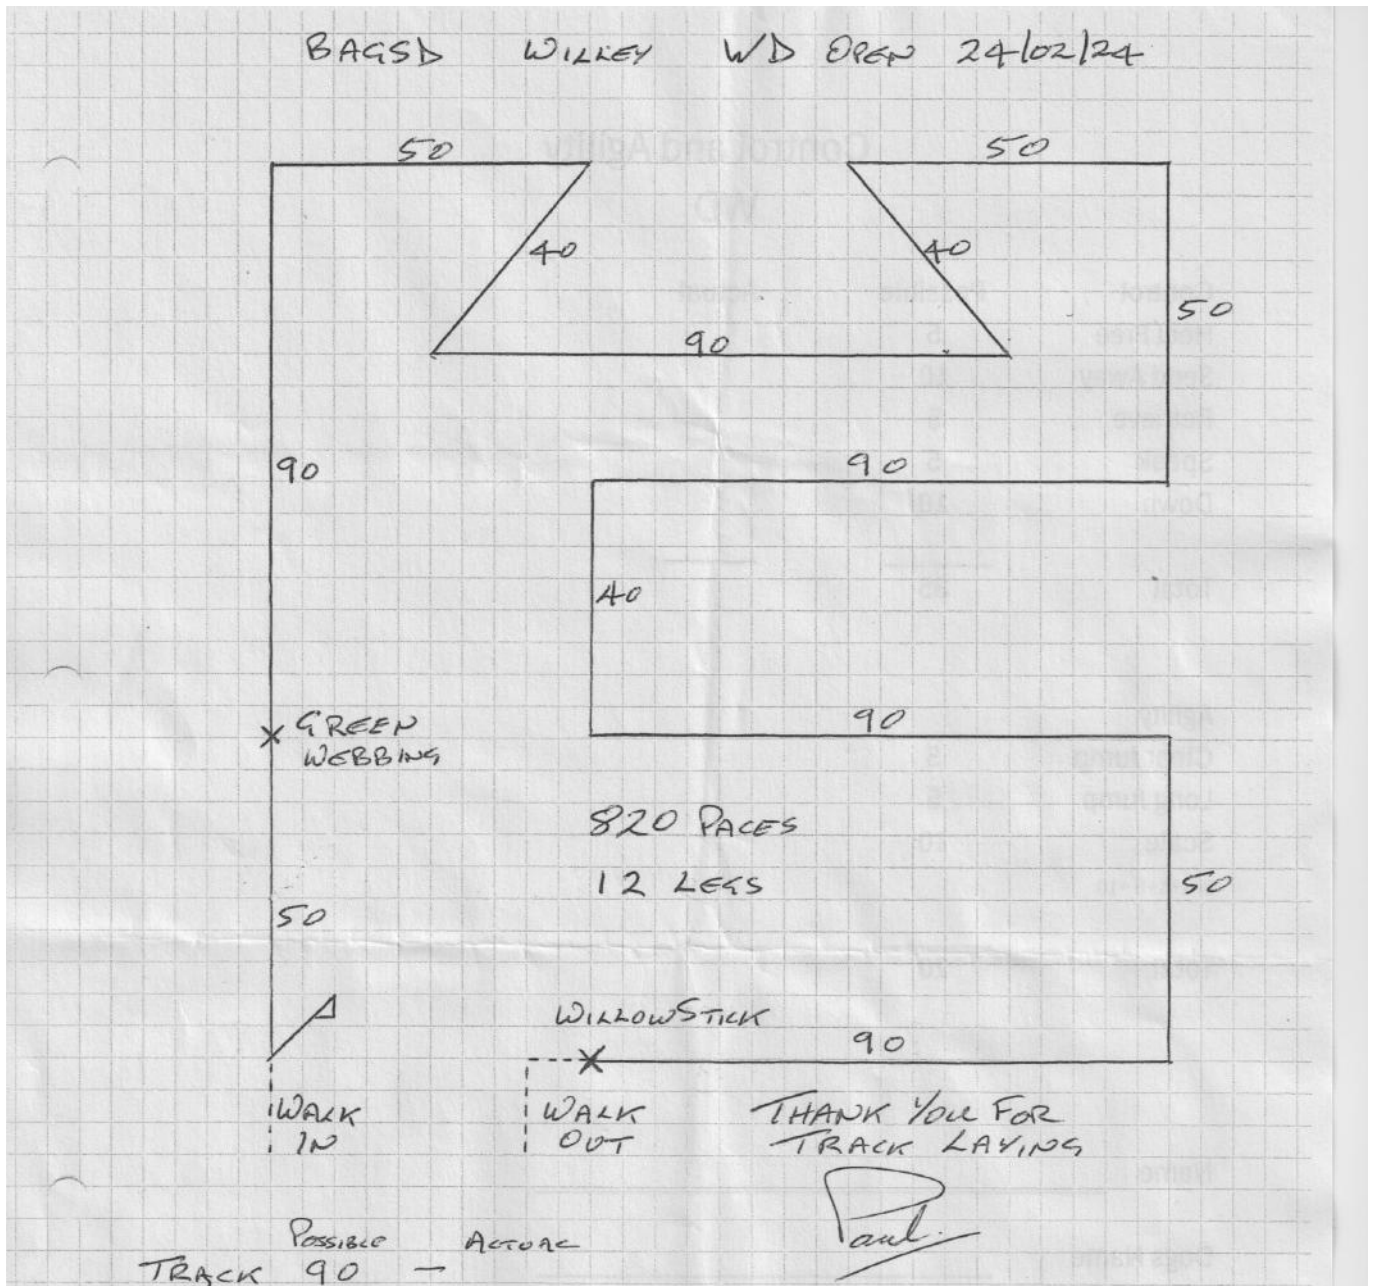 BAGSD WILLEY WD OPEN 24/02/24
50
50
40
40
50
90
90
90
40
GREEN
WEBBING
90
820 PACES
12 LEGS
50
50
WILLOW STICK
90
WALK
IN
WALK
OUT
THANK YOU FOR
TRACK LAYING
Paul.
POSSIBLE ACTUAL
TRACK 90 —
Control and Agility
WD